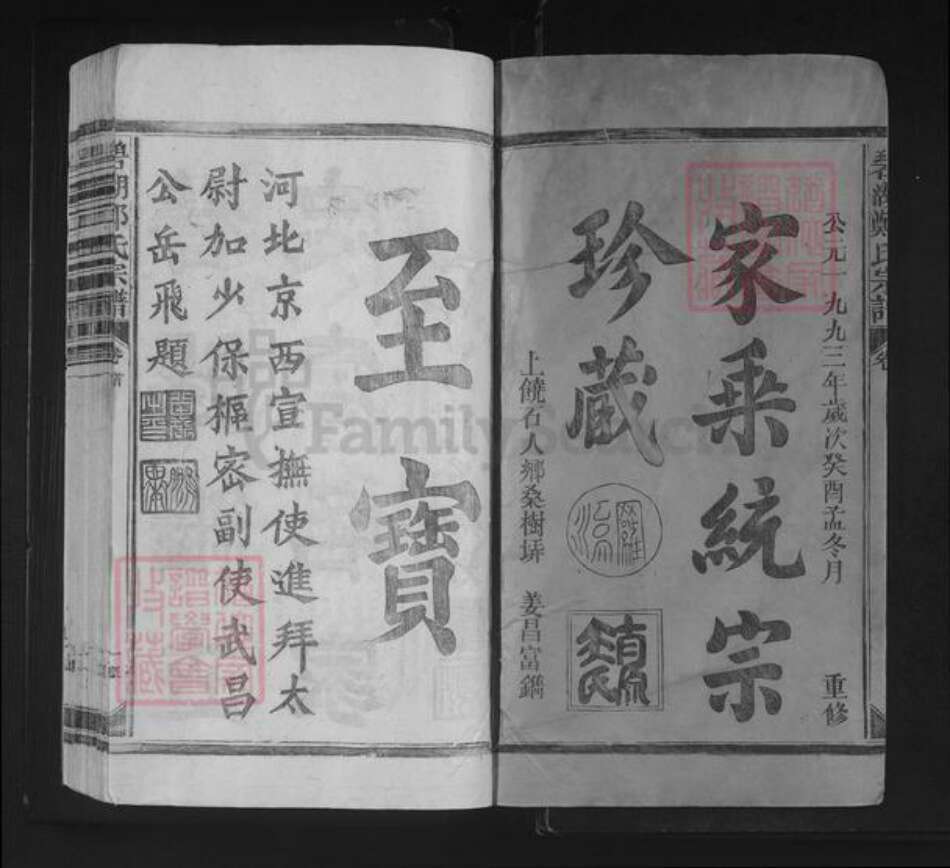 公元一九九三年歲次癸酉孟冬月 重修
家乘統宗
珍藏
上饒石人鄉桑樹塝 姜昌富鐫
鄭氏宗譜
至寶
河北京西宣撫使進拜太
尉加少保樞密副使武昌
公岳飛題
氏宗譜
FamilySearch